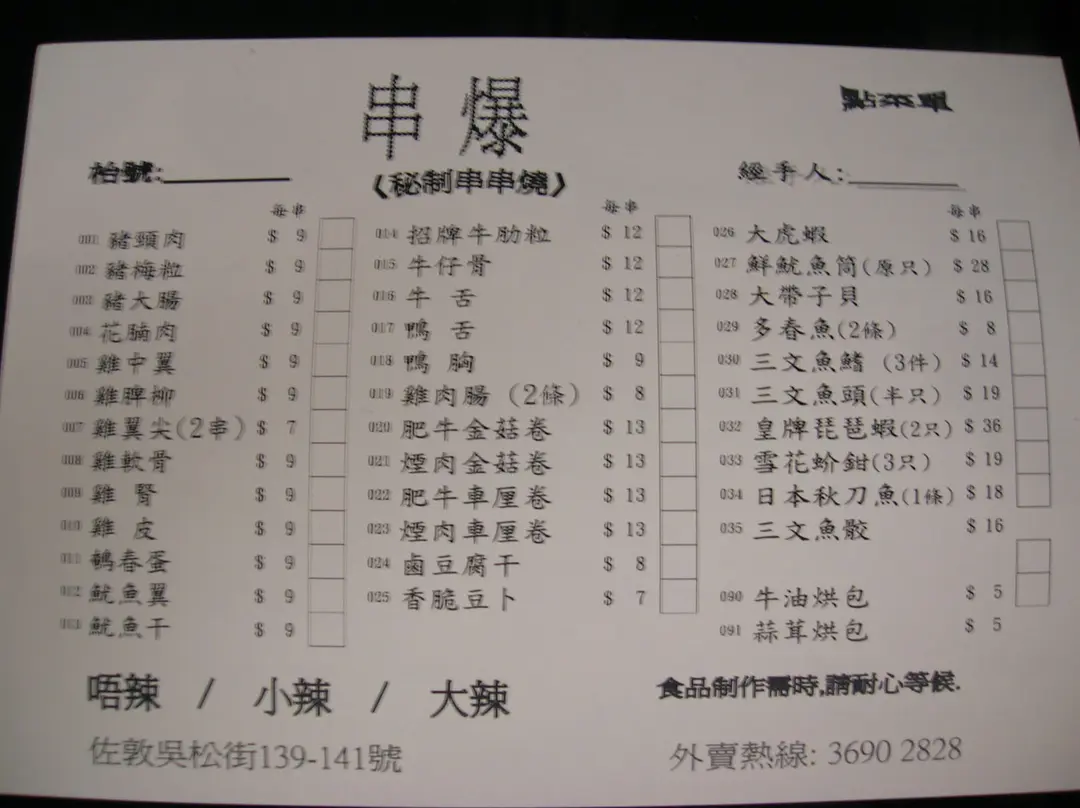 串爆
點菜單
枱號:
《秘制串串燒》
經手人:
每串
001 豬頸肉 $ 9
002 豬梅粒 $ 9
003 豬大腸 $ 9
004 花腩肉 $ 9
005 雞中翼 $ 9
006 雞脾柳 $ 9
007 雞翼尖(2串) $ 7
008 雞軟骨 $ 9
009 雞腎 $ 9
010 雞皮 $ 9
011 鵪春蛋 $ 9
012 魷魚翼 $ 9
013 魷魚干 $ 9
每串
014 招牌牛肋粒 $ 12
015 牛仔骨 $ 12
016 牛舌 $ 12
017 鴨舌 $ 12
018 鴨胸 $ 9
019 雞肉腸 (2條) $ 8
020 肥牛金菇卷 $ 13
021 煙肉金菇卷 $ 13
022 肥牛車厘卷 $ 13
023 煙肉車厘卷 $ 13
024 鹵豆腐干 $ 8
025 香脆豆卜 $ 7
每串
026 大虎蝦 $ 16
027 鮮魷魚筒(原只) $ 28
028 大帶子貝 $ 16
029 多春魚(2條) $ 8
030 三文魚鰭 (3件) $ 14
031 三文魚頭(半只) $ 19
032 皇牌琵琶蝦(2只) $ 36
033 雪花蚧鉗(3只) $ 19
034 日本秋刀魚(1條) $ 18
035 三文魚骹 $ 16
090 牛油烘包 $ 5
091 蒜茸烘包 $ 5
唔辣 / 小辣 / 大辣
食品制作需時,請耐心等候.
佐敦吳松街139-141號
外賣熱線: 3690 2828